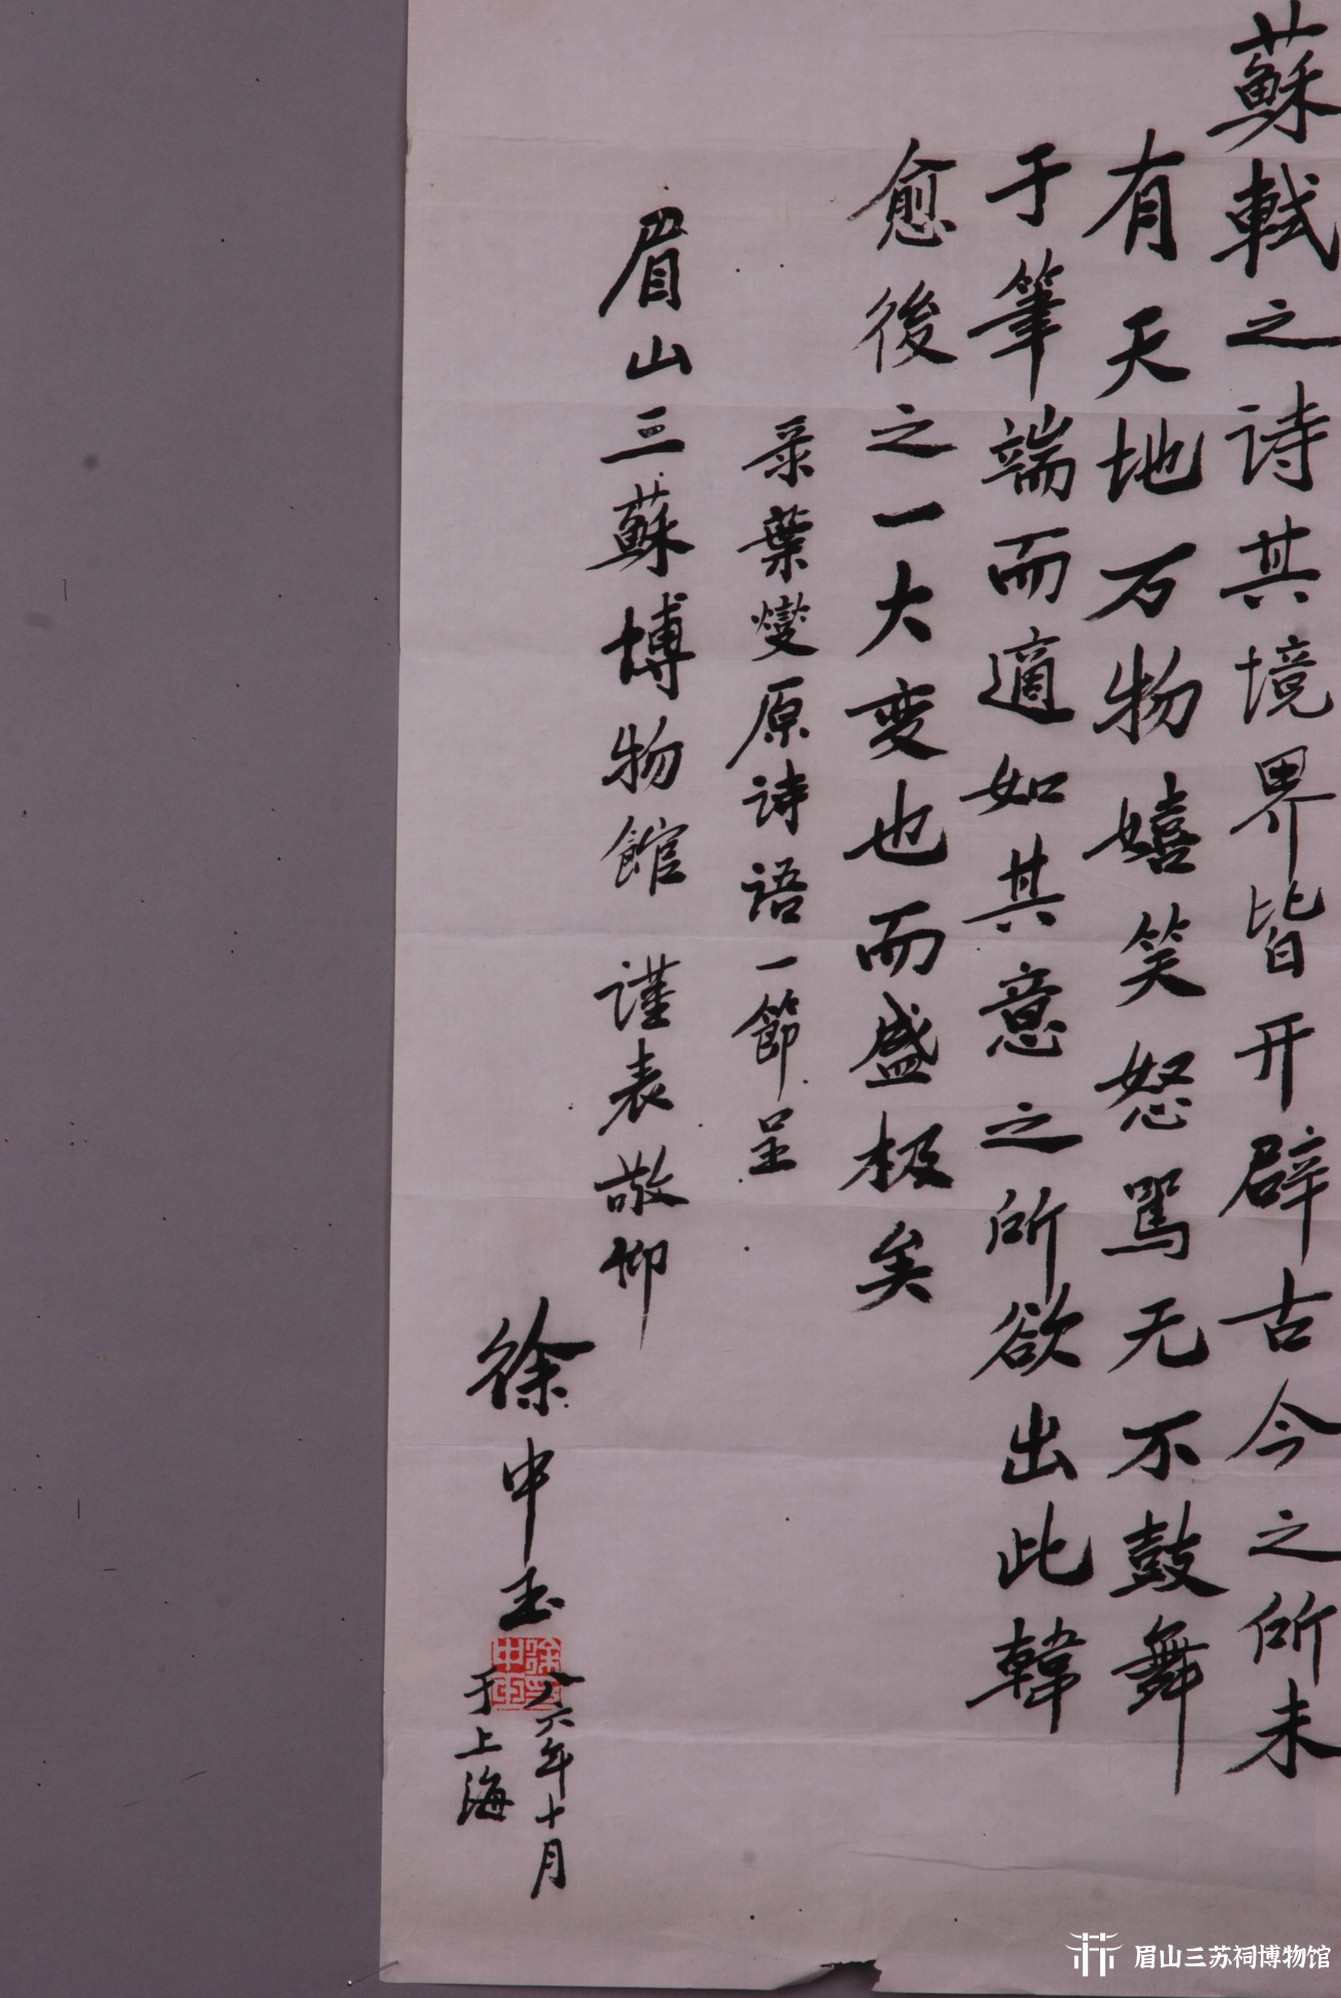 蘇軾之诗其境界皆开辟古今之所未
有天地万物嬉笑怒骂无不鼓舞
于筆端而適如其意之所欲出此韓
愈後之一大变也而盛极矣
录葉燮原诗语一節呈
眉山三蘇博物館 谨表敬仰
徐中玉
八六年十月
于上海
眉山三苏祠博物馆